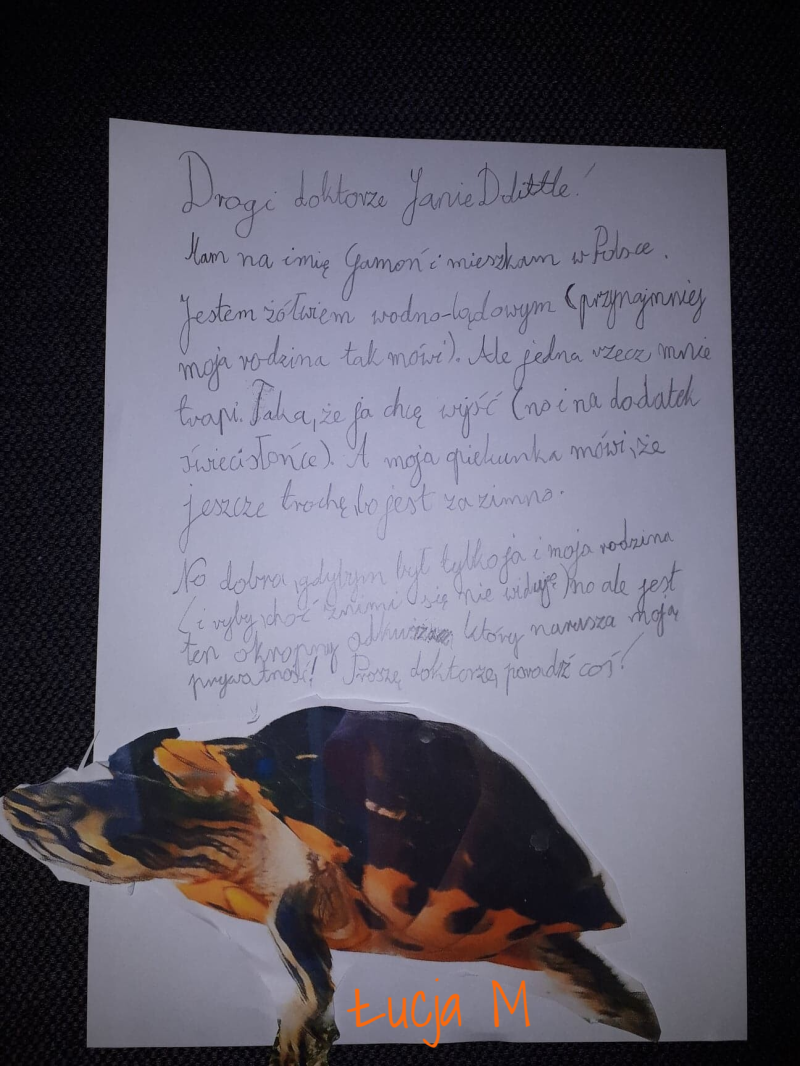 Drogi doktorze Janie Dolittle!
Mam na imię Gamoń i mieszkam w Polsce.
Jestem żółwiem wodno-lądowym (przynajmniej
moja rodzina tak mówi). Ale jedna rzecz mnie
trapi. Taka, że ja chcę wyjść (no i na dodatek
świeci słońce). A moja opiekunka mówi, że
jeszcze trochę, bo jest za zimno.
No dobra, gdybym był tylko ja i moja rodzina
(i ryby, choć z nimi się nie widuję) no ale jest
ten okropny który narusza moją
prywatność! Proszę doktorze, poradź coś!
Łucja M